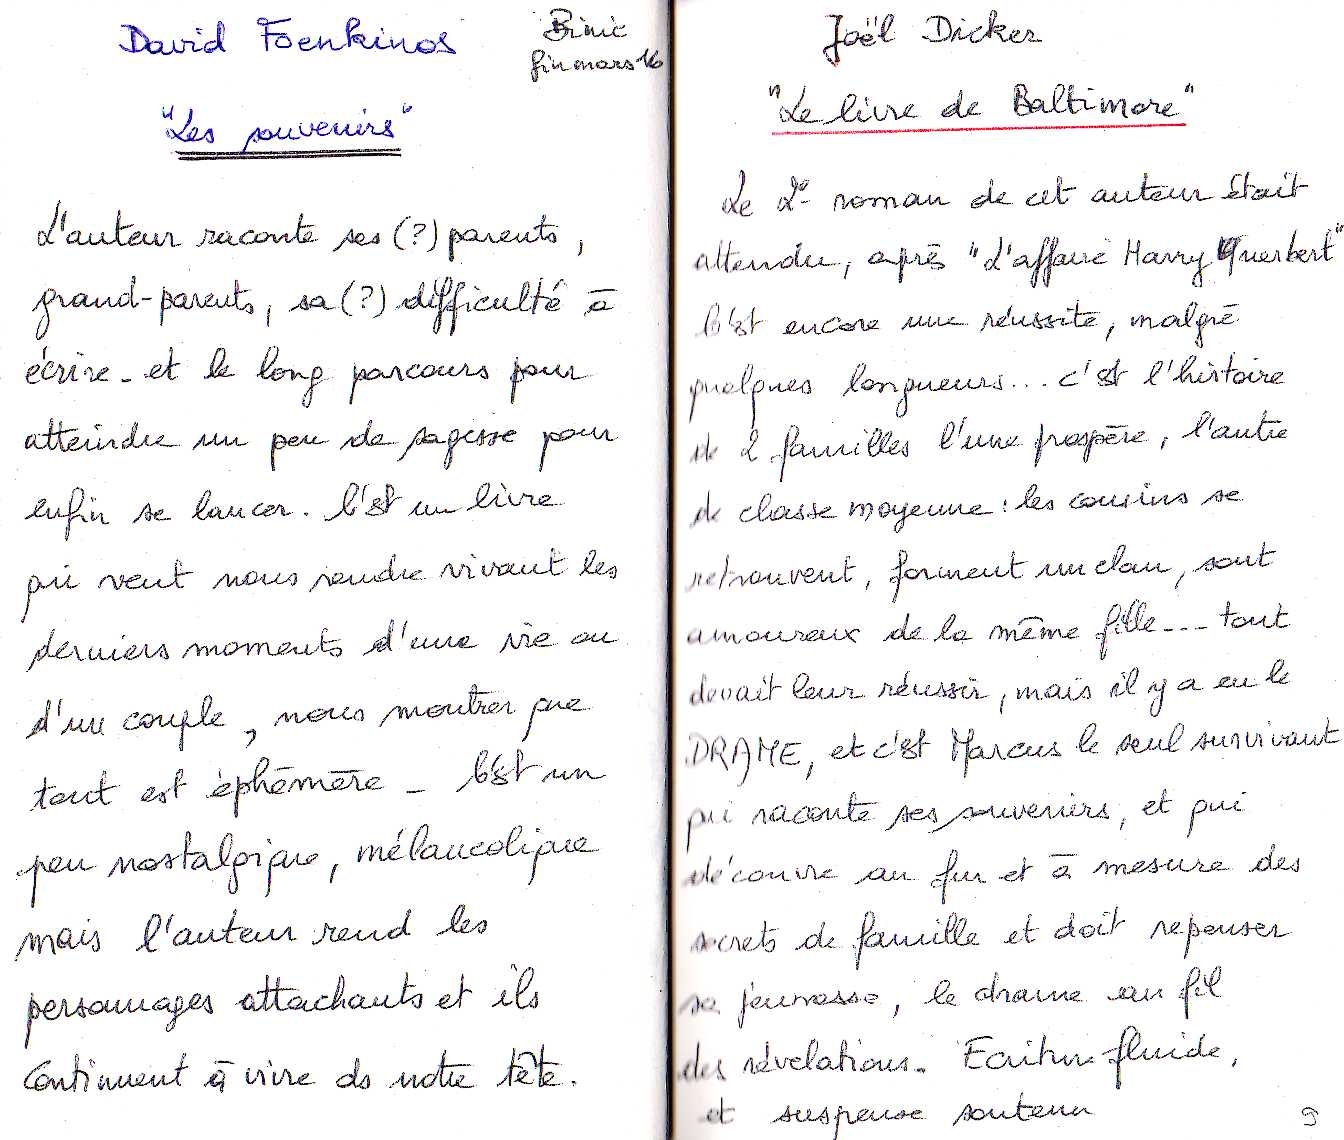 David Foenkinos
Binic
fin mars 16
"Les souvenirs"
L'auteur raconte ses (?) parents,
grand-parents, sa (?) difficulté à
écrire - et le long parcours pour
atteindre un peu de sagesse pour
enfin se lancer. C'est un livre
qui veut nous rendre vivant les
derniers moments d'une vie ou
d'un couple, nous montrer que
tout est éphémère - C'est un
peu nostalgique, mélancolique
mais l'auteur rend les
personnages attachants et ils
continuent à vivre ds notre tête.
Joël Dicker
"Le livre de Baltimore"
Le 2e roman de cet auteur était
attendu, après "L'affaire Harry Querbert"
C'est encore une réussite, malgré
quelques longueurs... c'est l'histoire
de 2 familles l'une prospère, l'autre
de classe moyenne : les cousins se
retrouvent, forment un clan, sont
amoureux de la même fille --- tout
devait leur réussir, mais il y a eu le
DRAME, et c'est Marcus le seul survivant
qui raconte ses souvenirs, et qui
découvre au fur et à mesure des
secrets de famille et doit repenser
sa jeunesse, le drame au fil
des révélations. Ecriture fluide,
et suspense soutenu
9